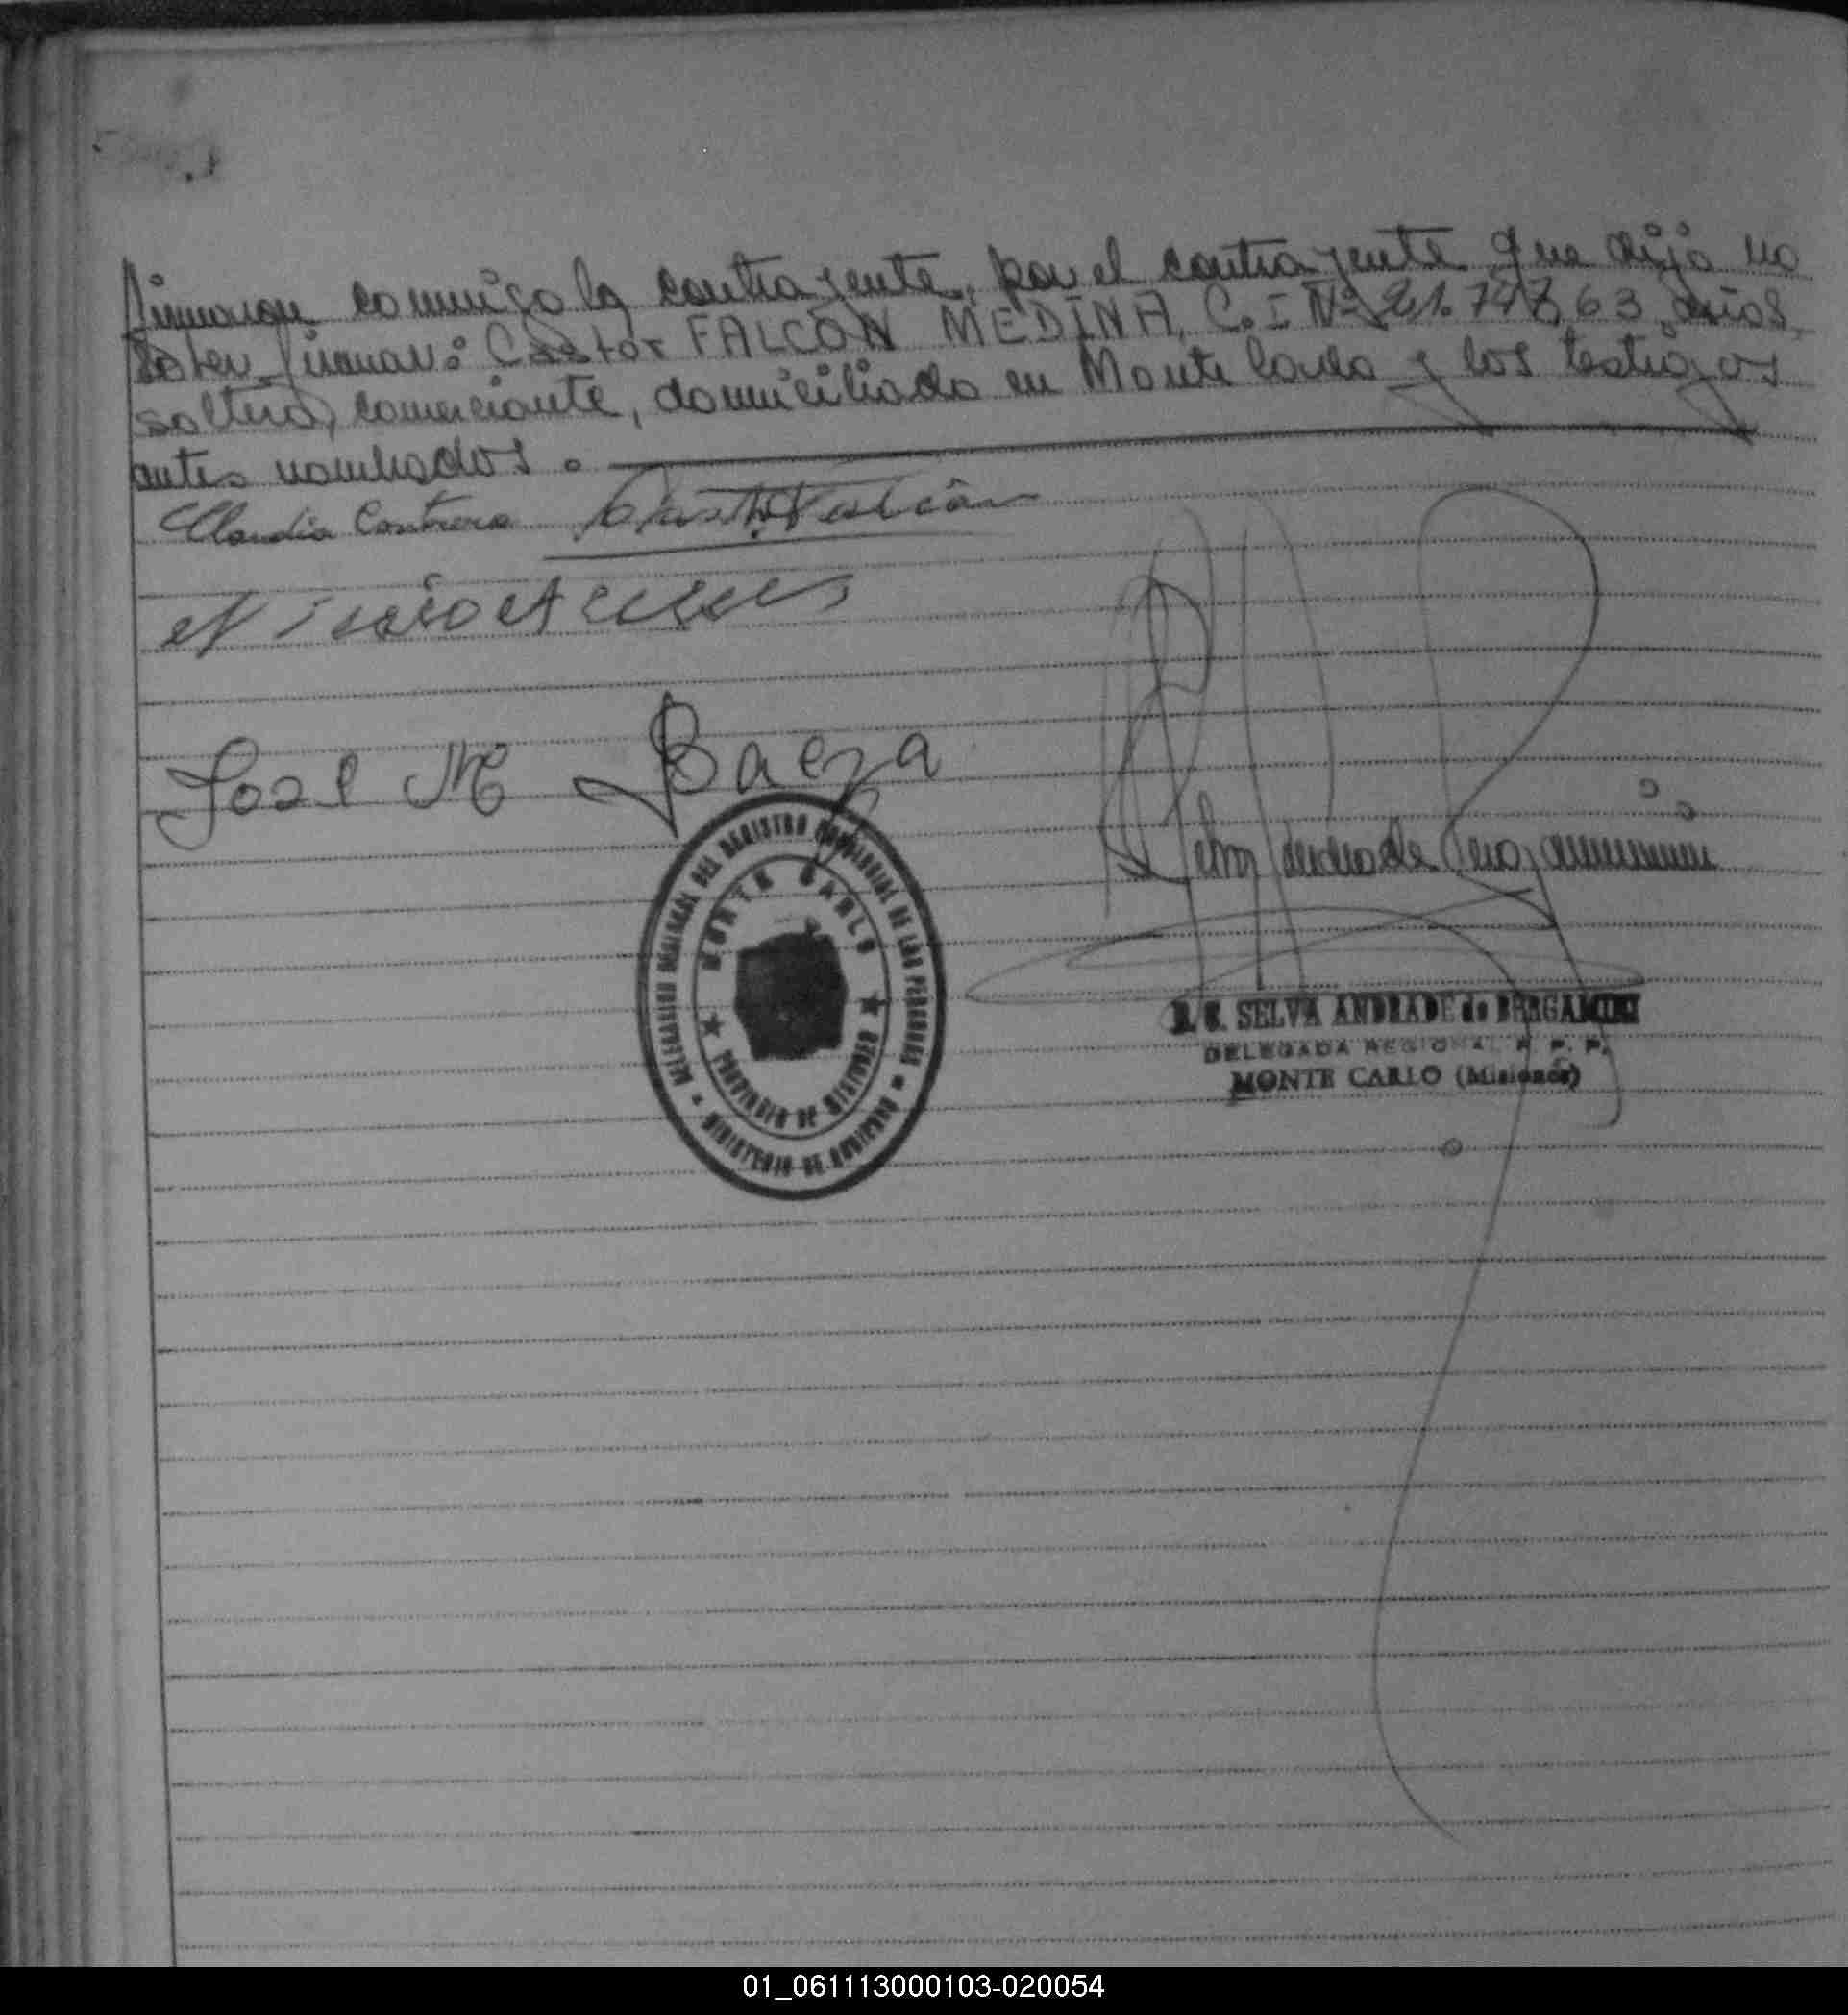 firmaron conmigo la contrayente, por el contrayente que dijo no
saber firmar: Castor FALCÓN MEDINA, C.I Nº 21.747, 63 años,
soltero, comerciante, domiciliado en Monte Carlo y los testigos
antes nombrados.
Claudia Contrera Castor Falcón
José M Baeza
DELEGACION REGIONAL DEL REGISTRO PROVINCIAL DE LAS PERSONAS
MONTE CARLO
PROVINCIA DE MISIONES
MINISTERIO DE GOBIERNO
SELVA ANDRADE de BERGAMINI
DELEGADA REGIONAL R. P. P.
MONTE CARLO (Misiones)
01_061113000103-020054